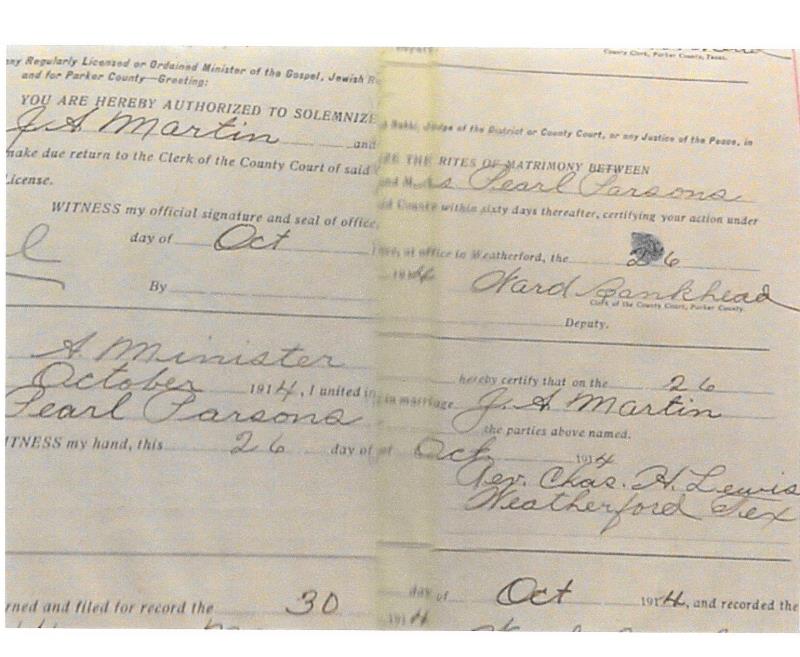 County Clerk, Parker County, Texas.
any Regularly Licensed or Ordained Minister of the Gospel, Jewish R
and for Parker County—Greeting:
YOU ARE HEREBY AUTHORIZED TO SOLEMNIZE
J. A Martin and
make due return to the Clerk of the County Court of said
License.
WITNESS my official signature and seal of office,
day of Oct
By
A Minister
October 1914, I united in
Pearl Parsons
ITNESS my hand, this 26 day of
rned and filed for record the 30
Rabbi, Judge of the District or County Court, or any Justice of the Peace, in
THE RITES OF MATRIMONY BETWEEN
and M s Pearl Parsons
County within sixty days thereafter, certifying your action under
at office in Weatherford, the 26
1914 Ward Bankhead
Clerk of the County Court, Parker County.
Deputy.
hereby certify that on the 26
in marriage J. A Martin
the parties above named.
of Oct 1914
Rev. Chas. H. Lewis
Weatherford Tex
day of Oct 1914, and recorded the
1914